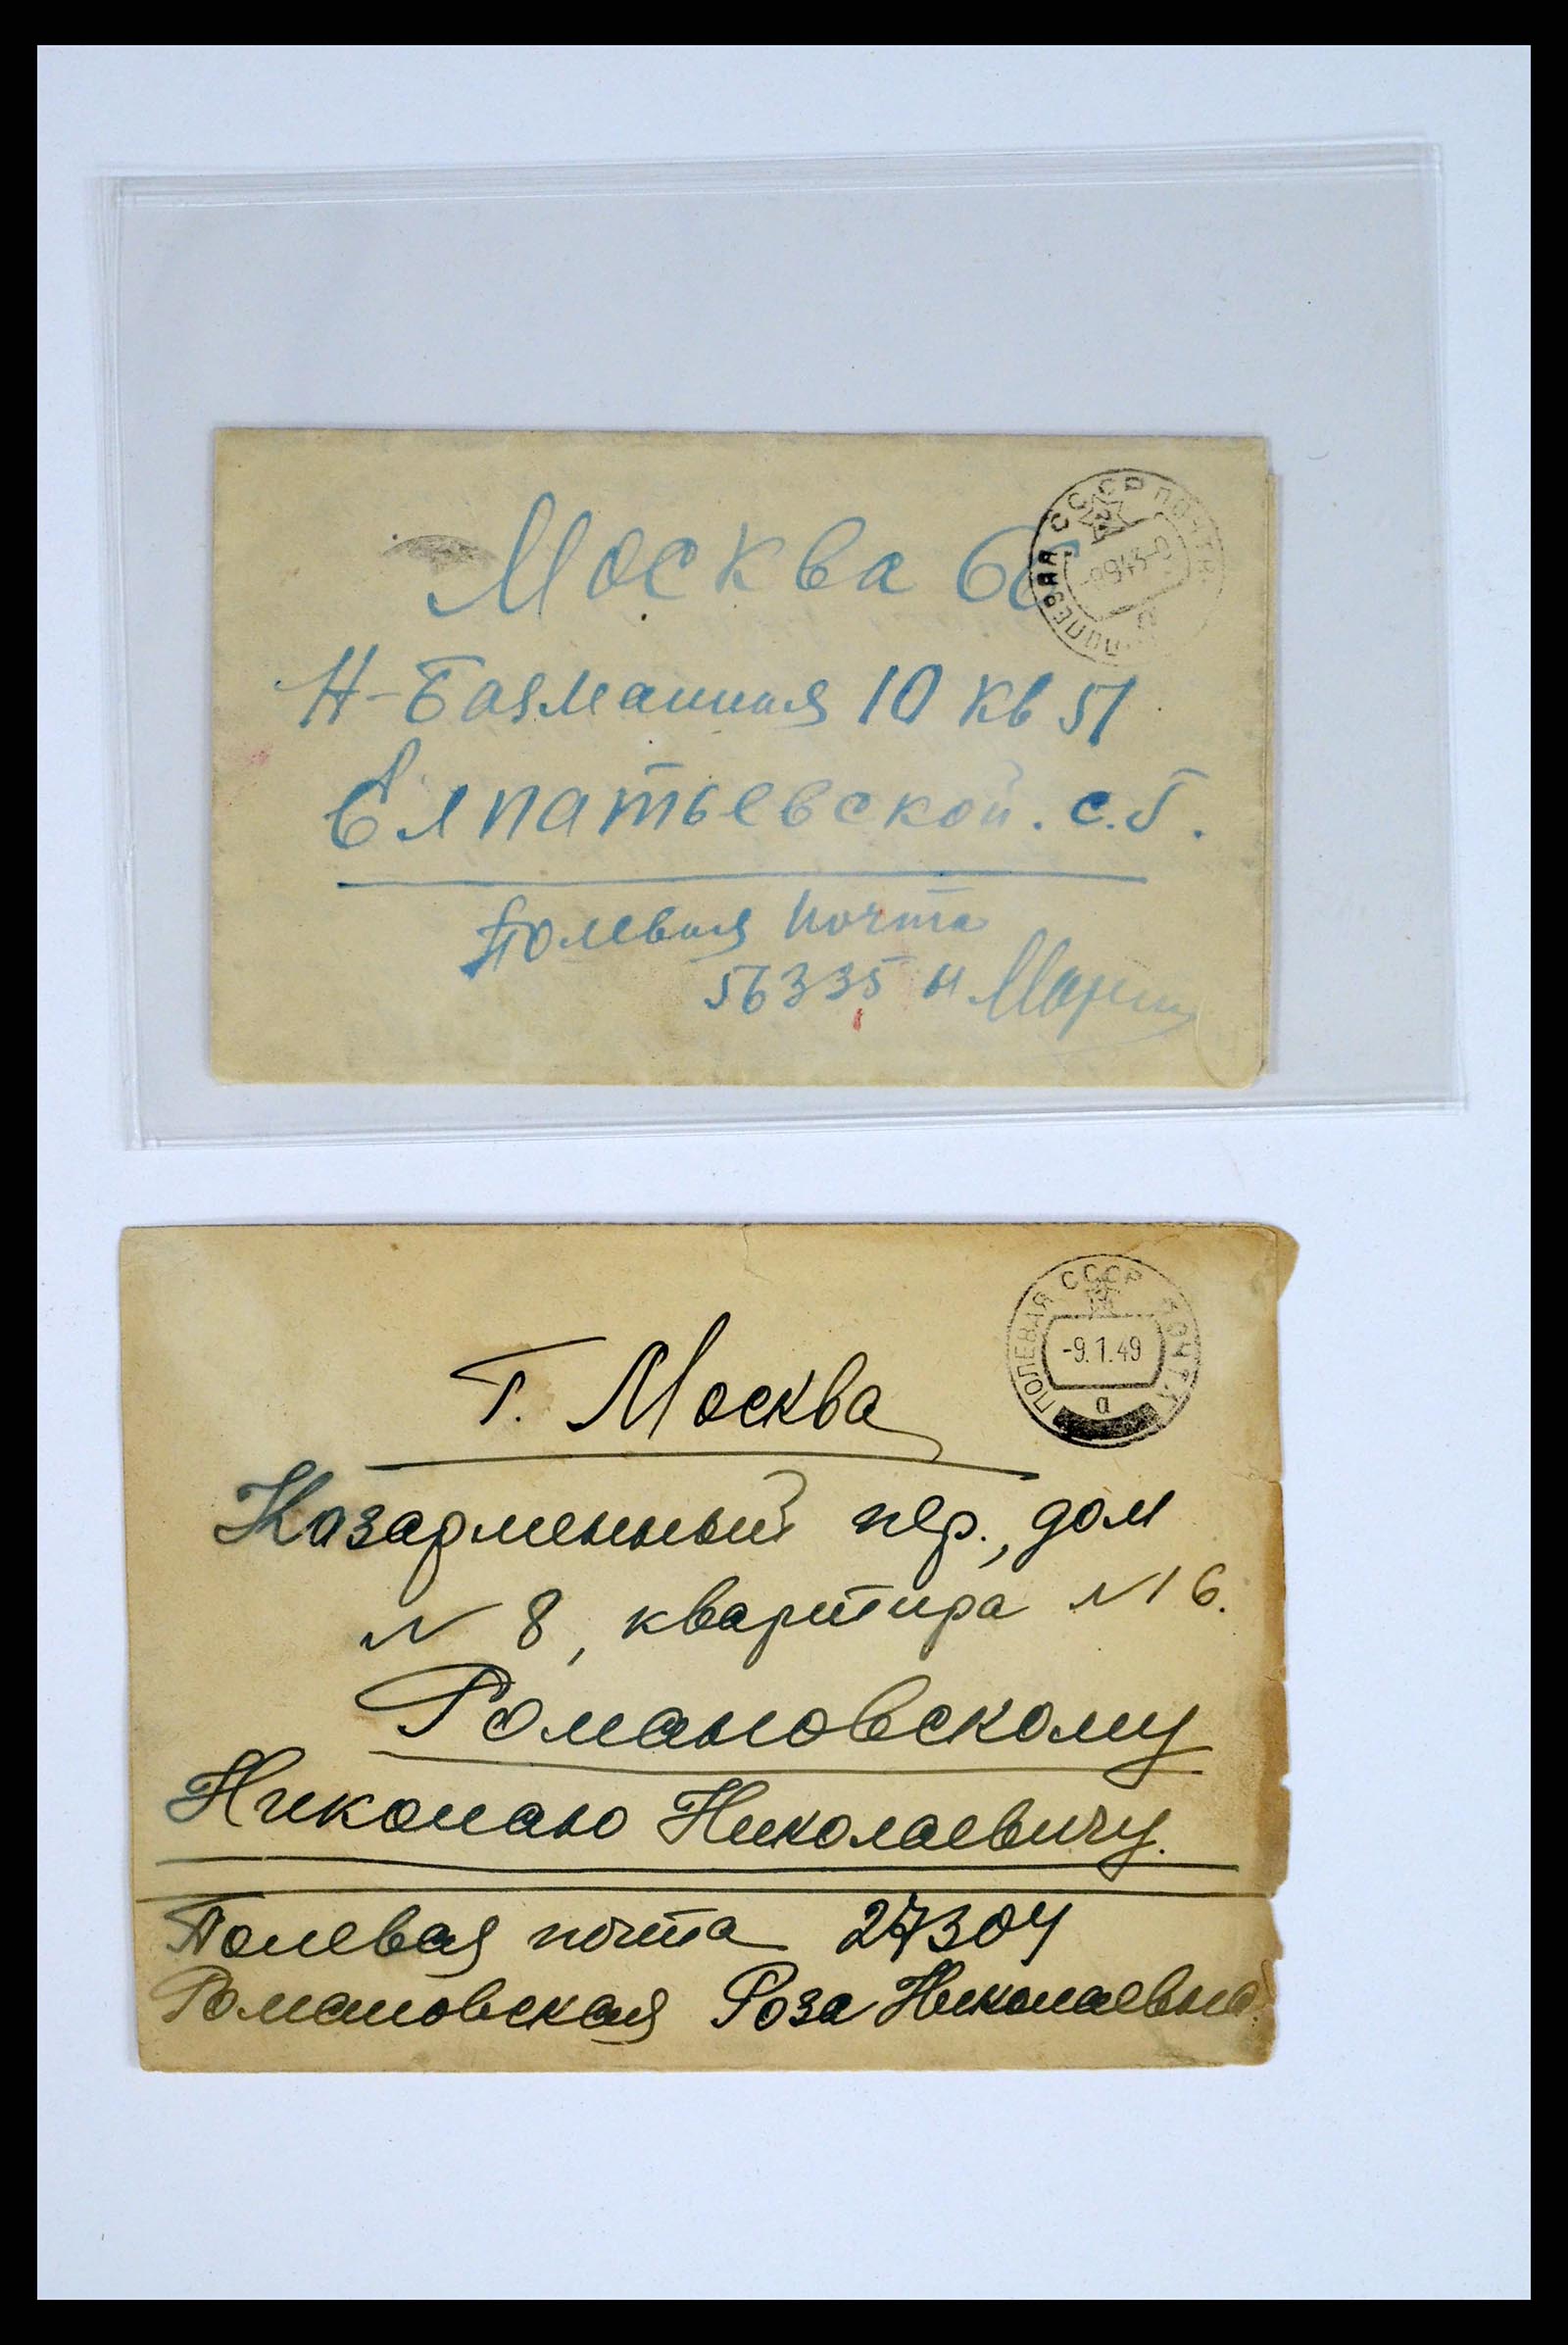 Москва 66
ПОЛЕВАЯ СССР ПОЧТА
Н-Басманная 10 кв 51
Елпатьевской. С.Г.
Полевая почта
56335 и
ПОЛЕВАЯ СССР ПОЧТА
-9.1.49
а
г. Москва
Казарменный пер., дом
N 8, квартира N 16.
Романовскому
Николаю Николаевичу.
Полевая почта 27304
Романовская Роза Николаевна